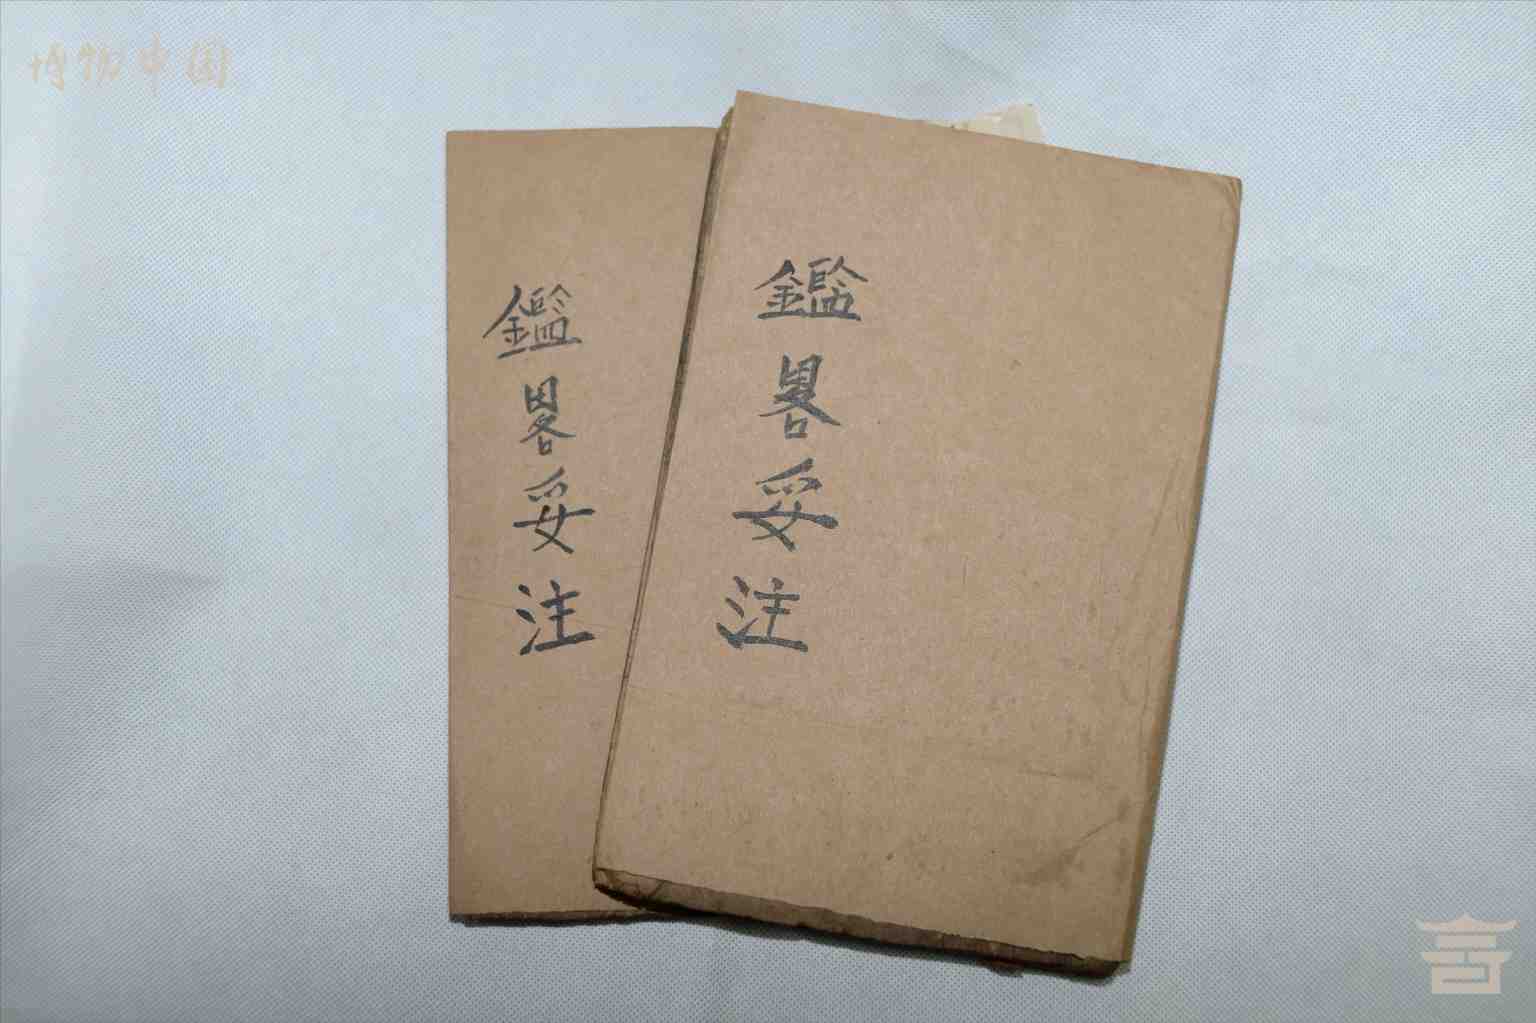 博物中国
鑑畧妥注
鑑畧妥注